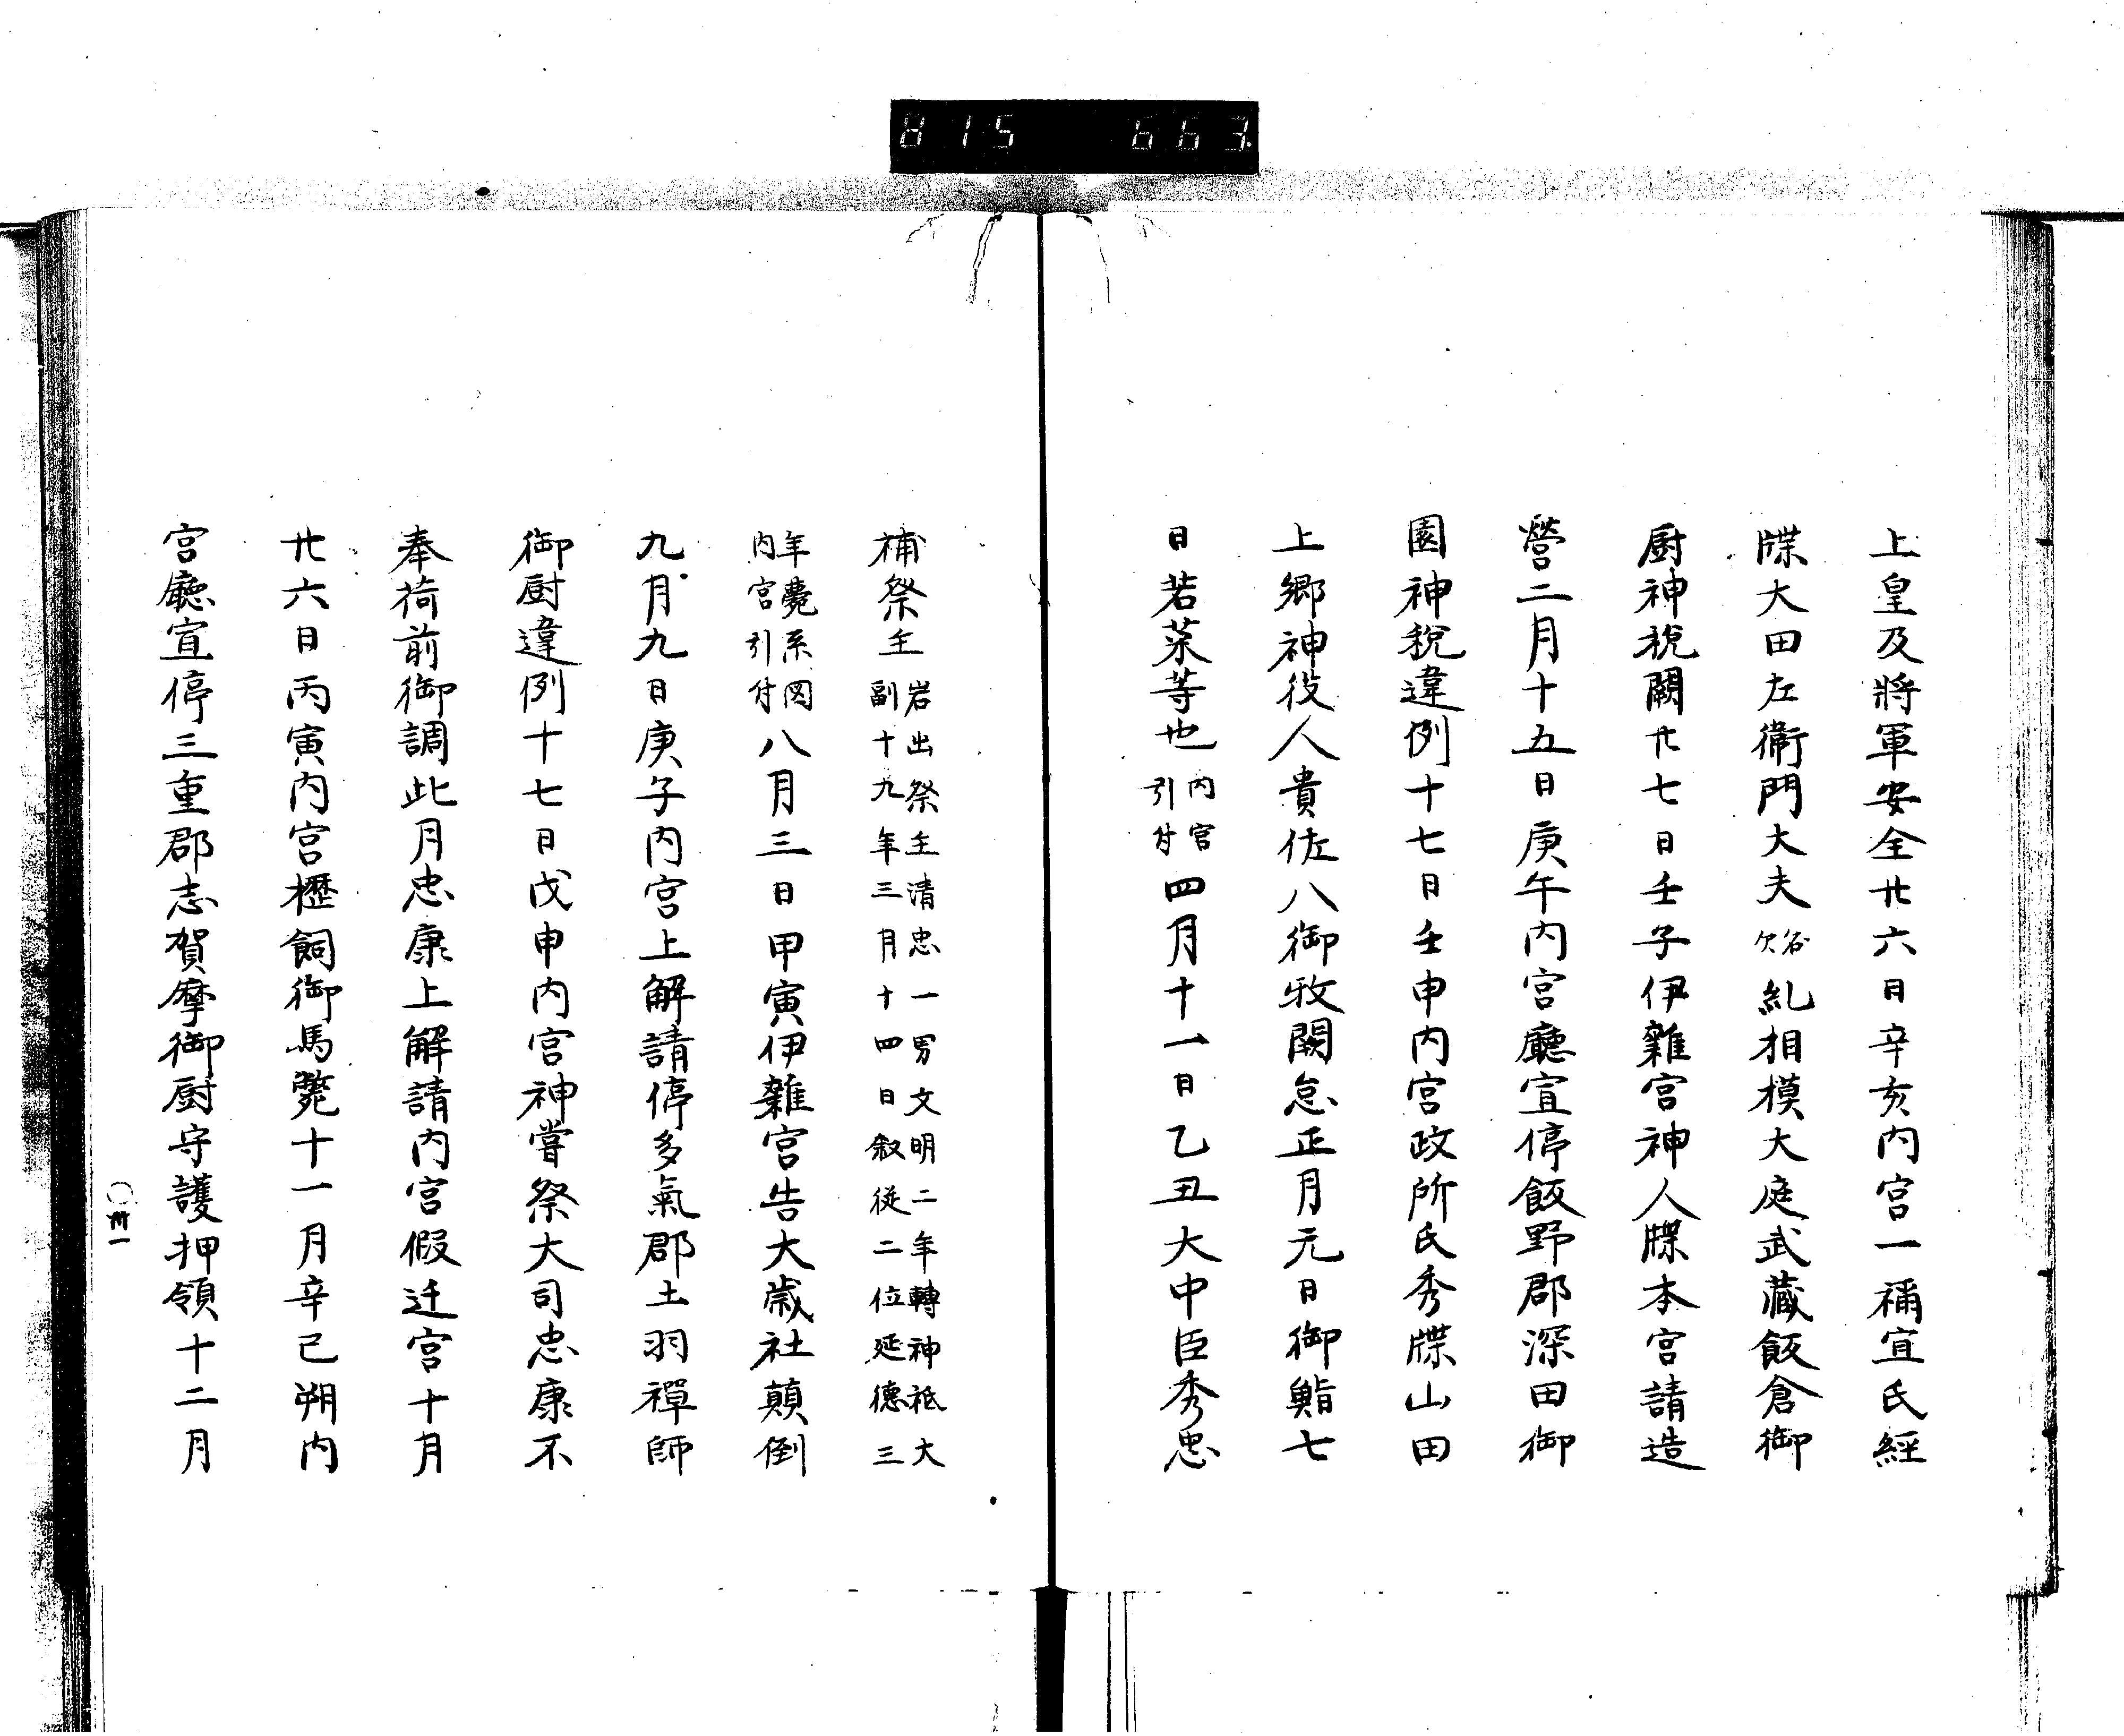 815 663
上皇及將軍安全廿六日辛亥内宮一禰宜氏經
牒大田左衛門大夫名欠糺相模大庭武藏飯倉御
厨神税闕廿七日壬子伊雜宮神人牒本宮請造
營二月十五日庚午内宮廳宣停飯野郡深田御
園神税違例十七日壬申内宮政所氏秀牒山田
上郷神役人貴佐八御牧闕怠正月元日御鮨七
日若菜等也内宮引付四月十一日乙丑大中臣秀忠
補祭主岩出祭主清忠一男文明二年轉神祇大副十九年三月十四日叙從二位延德三
年薨系図内宮引付八月三日甲寅伊雜宮告大歳社顛倒
九月九日庚子内宮上解請停多氣郡土羽禪師
御厨違例十七日戊申内宮神嘗祭大司忠康不
奉荷前御調此月忠康上解請内宮假迁宮十月
廿六日丙寅内宮櫪飼御馬斃十一月辛巳朔内
宮廳宣停三重郡志賀摩御厨守護押領十二月
〇卅一